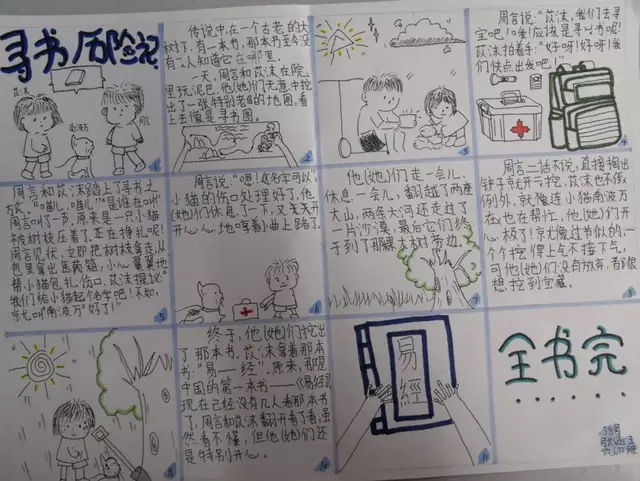 寻书历险记
苡沫
周言
南波万
1
传说中,在一个古老的大
树下,有一本书,那本书至今没
有人知道它在哪里。
一天,周言和苡沫在院
里玩泥巴,他(她)们无意中挖
出了一张特别老的地图,看
上去像是寻书图。
2
3
周言说:“苡沫,我们去寻
宝吧!哦!应该是寻书呢!”
苡沫拍着手:“好呀!好呀!我
们快点出发吧!”
4
周言和苡沫踏上了寻书之
方长。“喵儿,喵儿”“是谁在叫?”
周言叫了一声,原来是一只小猫
被树枝压着了,正在挣扎呢!
周言见状,立即把树枝拿走,从
包里拿出医药箱,小心翼翼地
帮小猫包扎伤口,苡沫提议:“
我们给小猫起个名字吧!不如,
就叫南波万好了!”
5
周言说:“嗯!这名字可以”,
小猫的伤口处理好了,他
(她)们休息了一下,又生关开
开心心地唱着小曲上路了。
6
他(她)们走一会儿,
休息一会儿,翻越了两座
大山,两条大河还走过了
一片沙漠,最后它们终
于到了那颗大树旁边。
7
周言一话不说,直接掏出
铲子就开云挖,苡沫也不例
例外,就像连小猫南波万
在也在帮忙,他(她)们开
心极了!就像过节似的,一
个个挖得上气不接下气,
可他(她)们没有放弃,都很
想挖到宝藏,
8
9
终于,他(她)们挖出
了那本书,苡沫拿着那本
书:“易一经”,原来,那是
中国的第一本书——《易经》
现在已经没有几人看那本书
了,周言和苡沫翻开看了看,虽
然看不懂,但他(她)们还
是特别开心。
10
易
經
11
全书完
......
38号